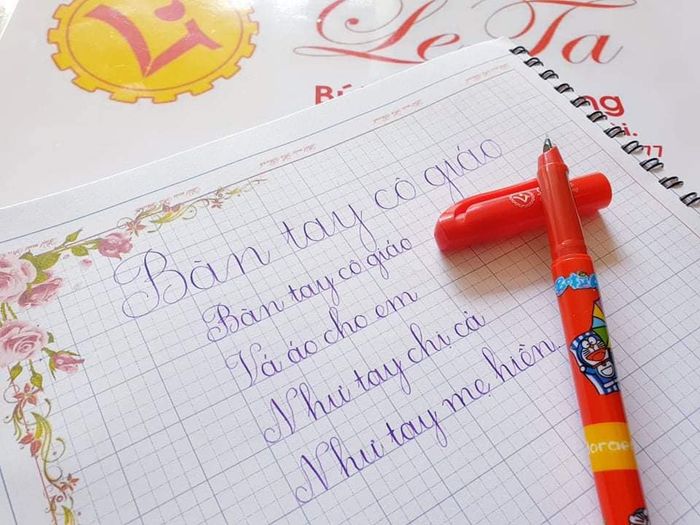 Le Ta
Bàn tay cô giáo
Bàn tay cô giáo
Vá áo cho em
Như tay chị cả
Như tay mẹ hiền